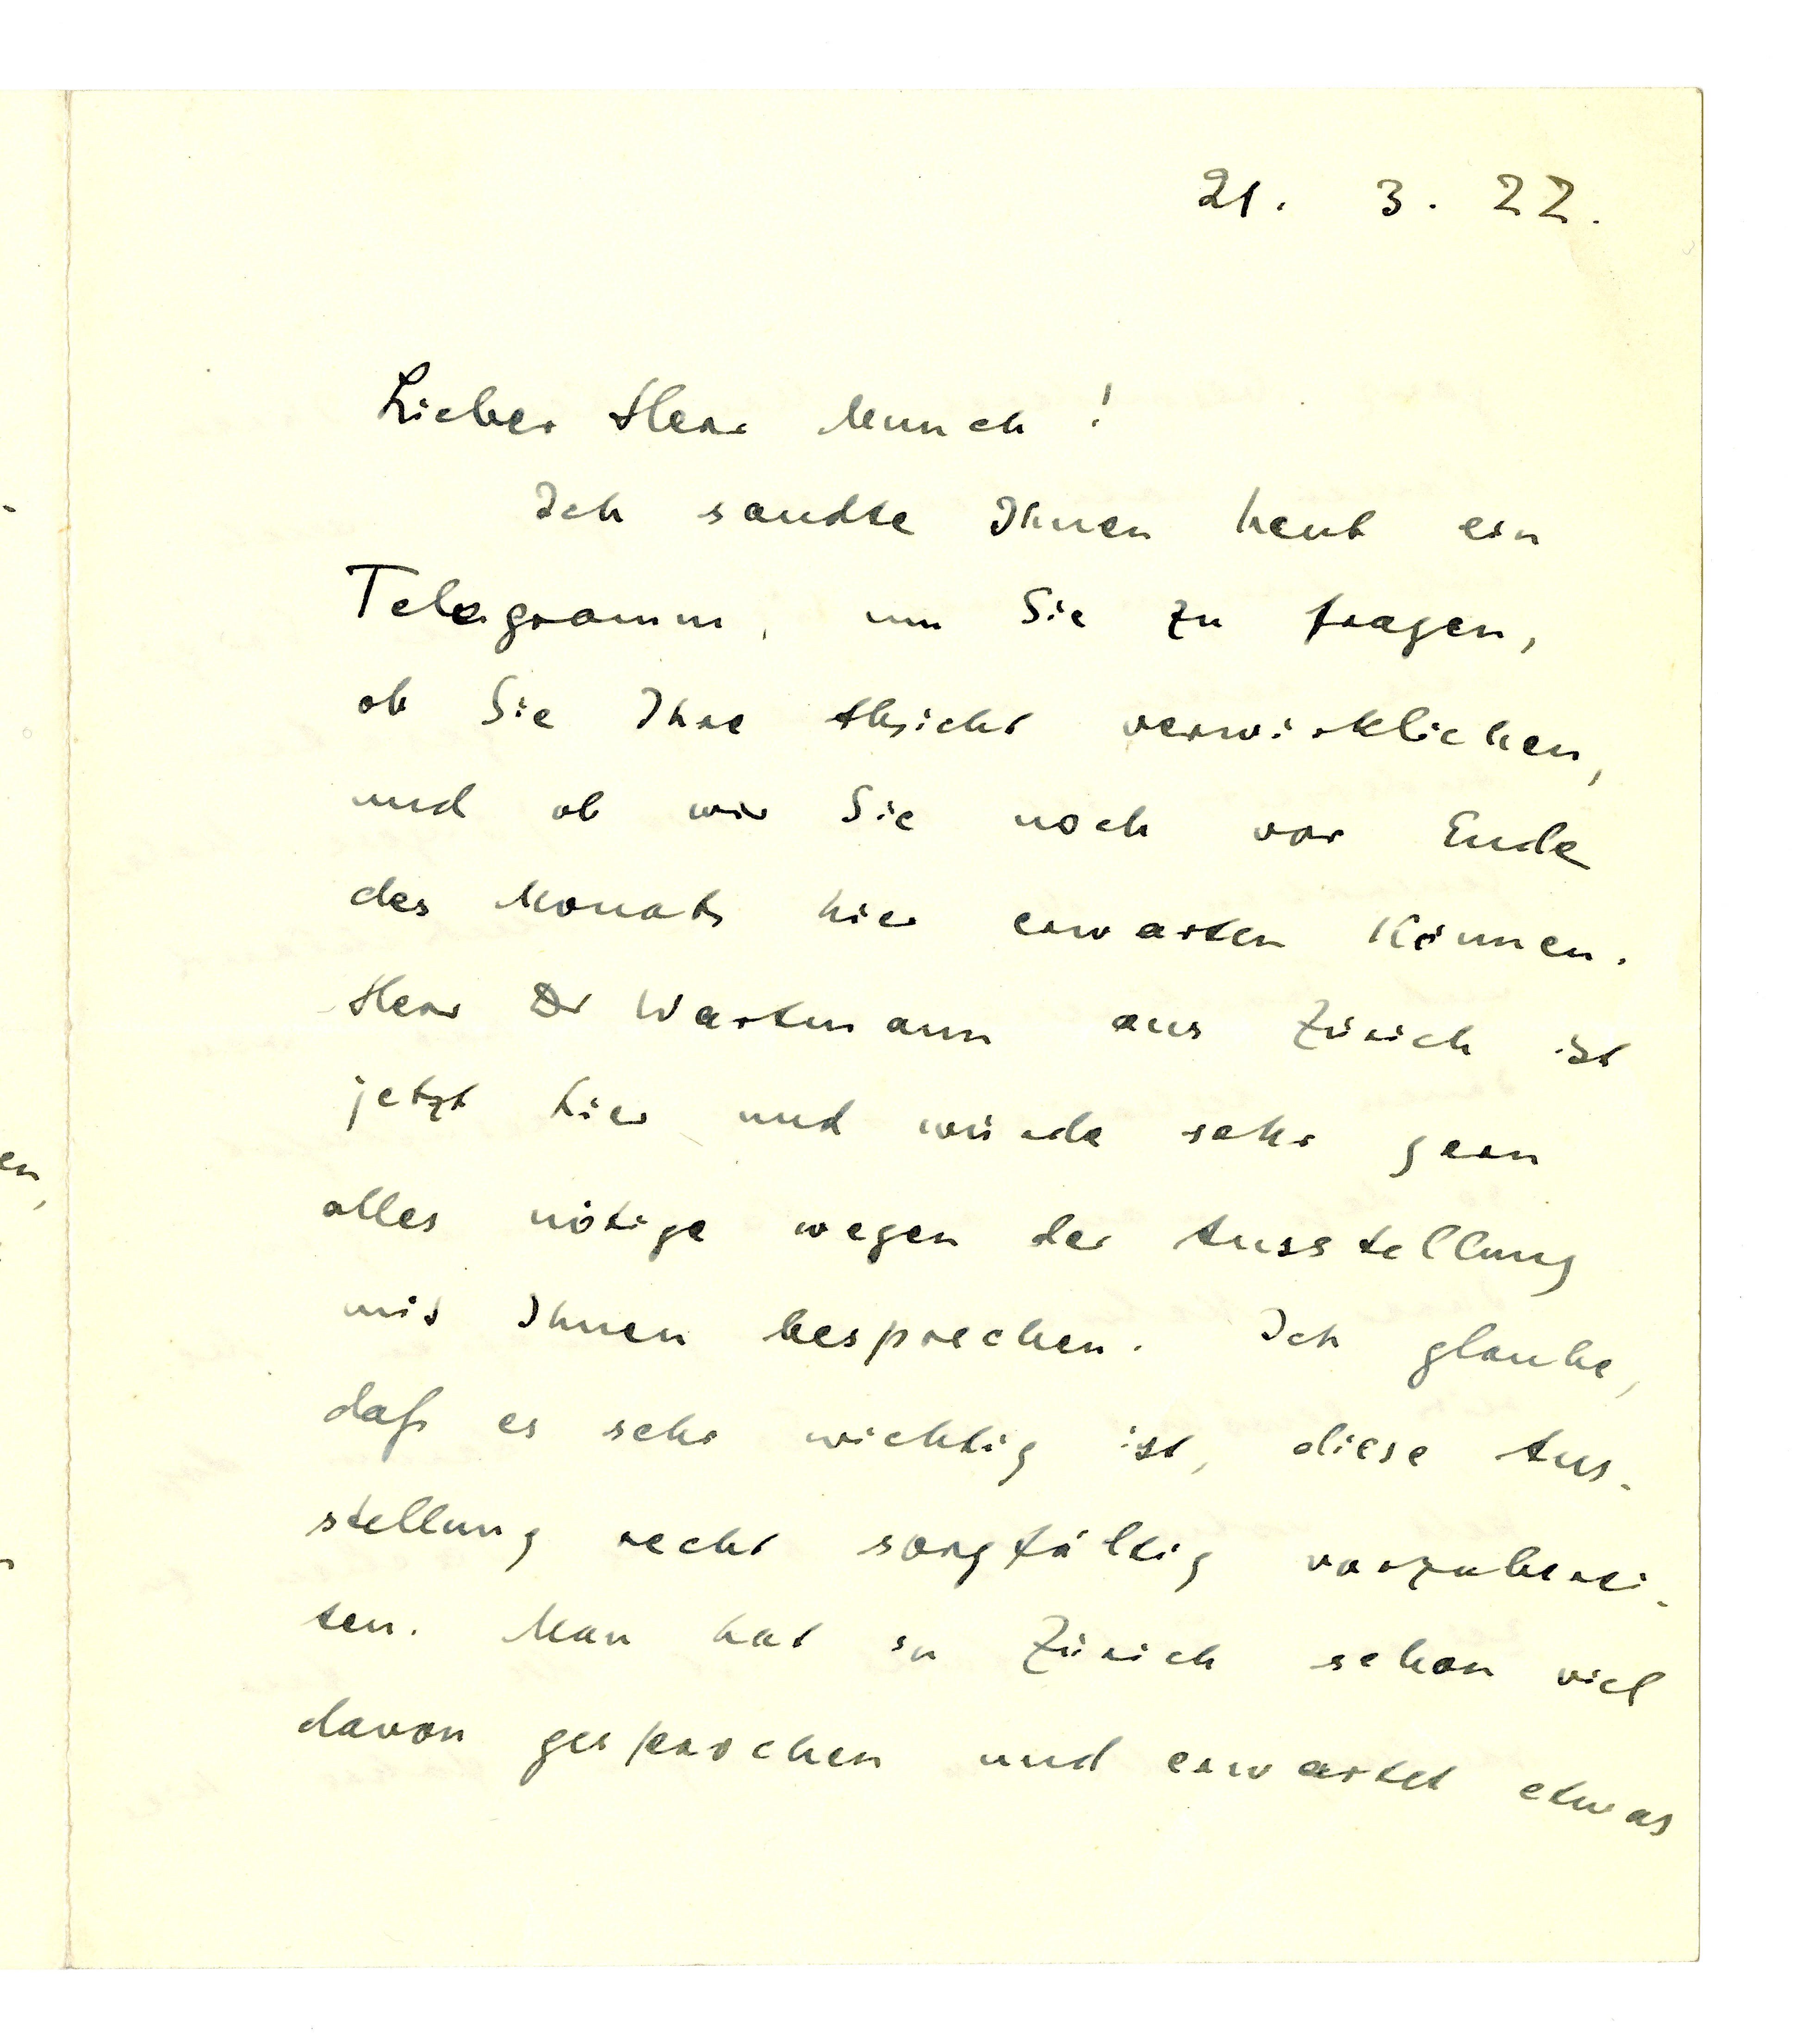 21. 3. 22.
Lieber Herr Munch!
Ich sandte Ihnen heut ein
Telegramm, um Sie zu fragen,
ob Sie Ihre Absicht verwirklichen,
und ob wir Sie noch vor Ende
des Monats hier erwarten können.
Herr Dr Wartmann aus Zürich ist
jetzt hier und würde sehr gern
alles nötige wegen der Ausstellung
mit Ihnen besprechen. Ich glaube,
daß es sehr wichtig ist, diese Aus-
stellung recht sorgfältig vorzuberei-
ten. Man hat in Zürich schon viel
davon gesprochen und erwartet etwas